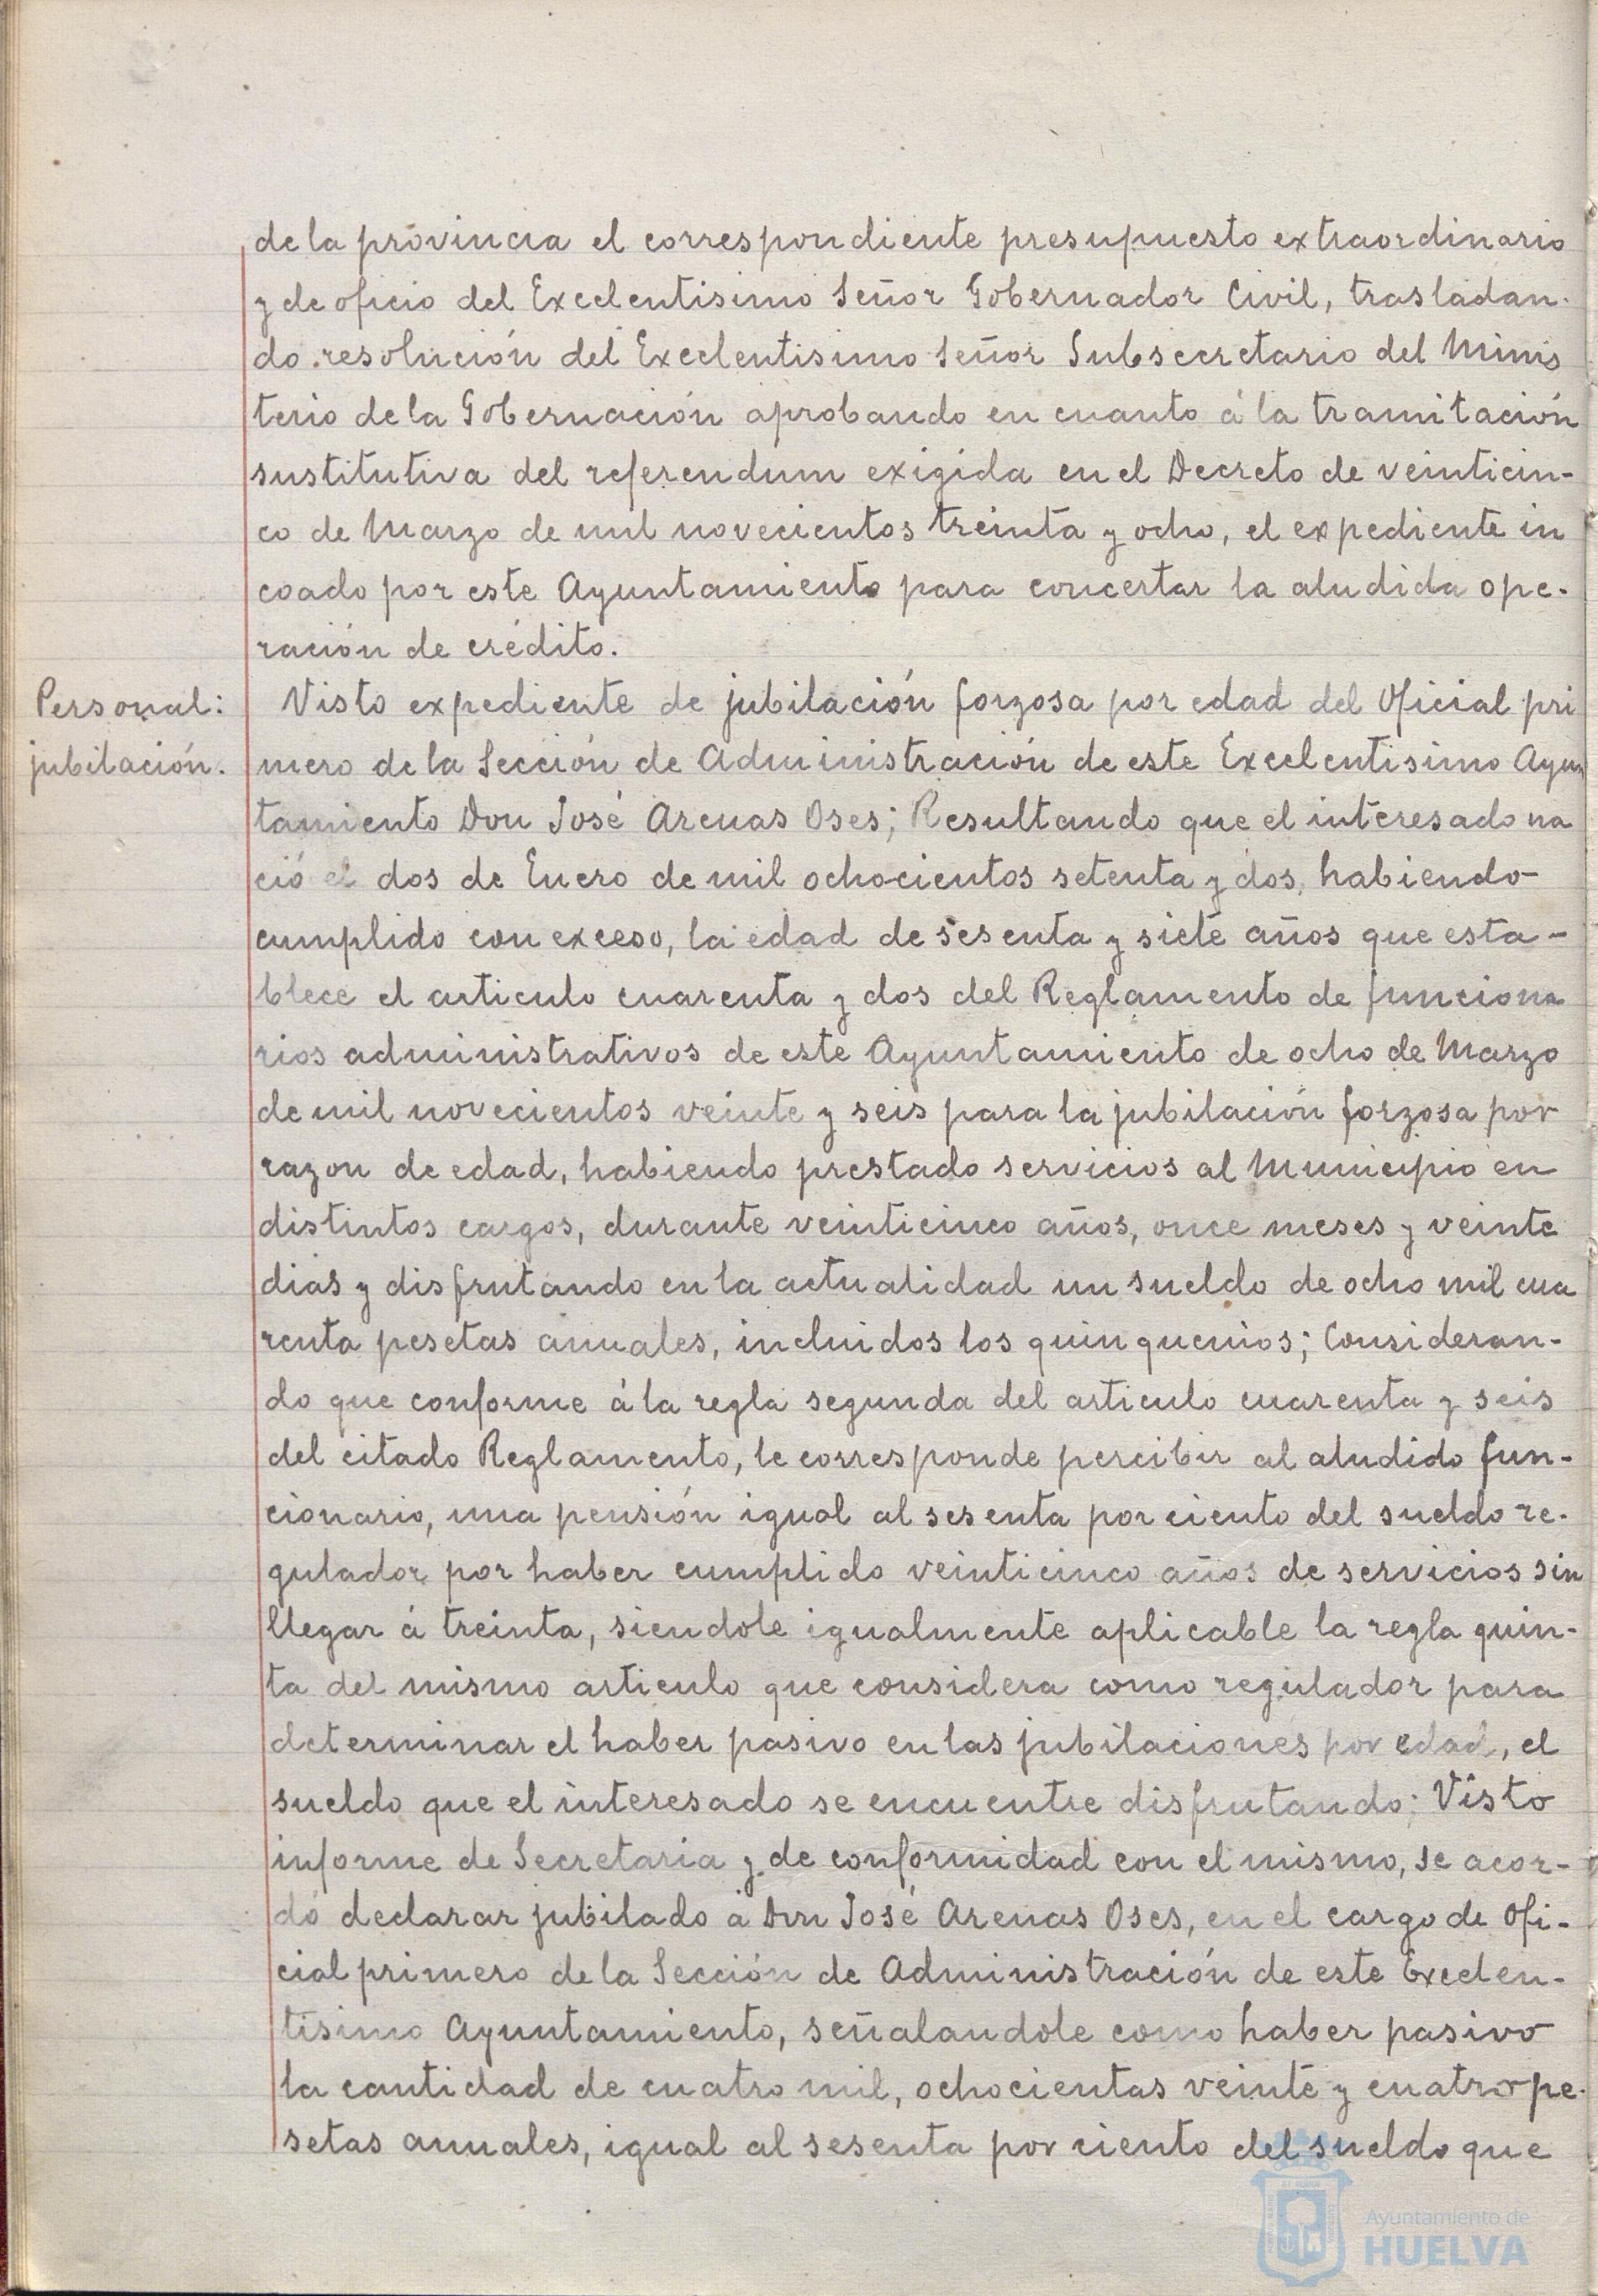 de la provincia el correspondiente presupuesto extraordinario
y de oficio del Excelentisimo Señor Gobernador Civil, trasladan-
do resolución del Excelentisimo Señor Subsecretario del Minis
terio de la Gobernación aprobando en cuanto á la tramitación
sustitutiva del referendum exigida en el Decreto de veinticin-
co de Marzo de mil novecientos treinta y ocho, el expediente in
coado por este Ayuntamiento para concertar la aludida ope-
ración de crédito.
Personal:
jubilación.
Visto expediente de jubilación forzosa por edad del Oficial pri
mero de la Sección de Administración de este Excelentisimo Ayun
tamiento Don José Arenas Oses; Resultando que el interesado na
ció el dos de Enero de mil ochocientos setenta y dos, habiendo
cumplido con exceso, la edad de sesenta y siete años que esta-
blece el articulo cuarenta y dos del Reglamento de funciona
rios administrativos de este Ayuntamiento de ocho de Marzo
de mil novecientos veinte y seis para la jubilación forzosa por
razon de edad, habiendo prestado servicios al Municipio en
distintos cargos, durante veinticinco años, once meses y veinte
dias y disfrutando en la actualidad un sueldo de ocho mil cua
renta pesetas anuales, incluidos los quinquenios; Consideran-
do que conforme á la regla segunda del articulo cuarenta y seis
del citado Reglamento, le corresponde percibir al aludido fun-
cionario, una pensión igual al sesenta por ciento del sueldo re-
gulador por haber cumplido veinticinco años de servicios sin
llegar á treinta, siendole igualmente aplicable la regla quin-
ta del mismo articulo que considera como regulador para
determinar el haber pasivo en las jubilaciones por edad, el
sueldo que el interesado se encuentre disfrutando; Visto
informe de Secretaria y de conformidad con el mismo, se acor-
dó declarar jubilado á Don José Arenas Oses, en el cargo de Ofi-
cial primero de la Sección de Administración de este Excelen-
tisimo Ayuntamiento, señalandole como haber pasivo
la cantidad de cuatro mil, ochocientas veinte y cuatro pe-
setas anuales, igual al sesenta por ciento del sueldo que
Ayuntamiento de
HUELVA